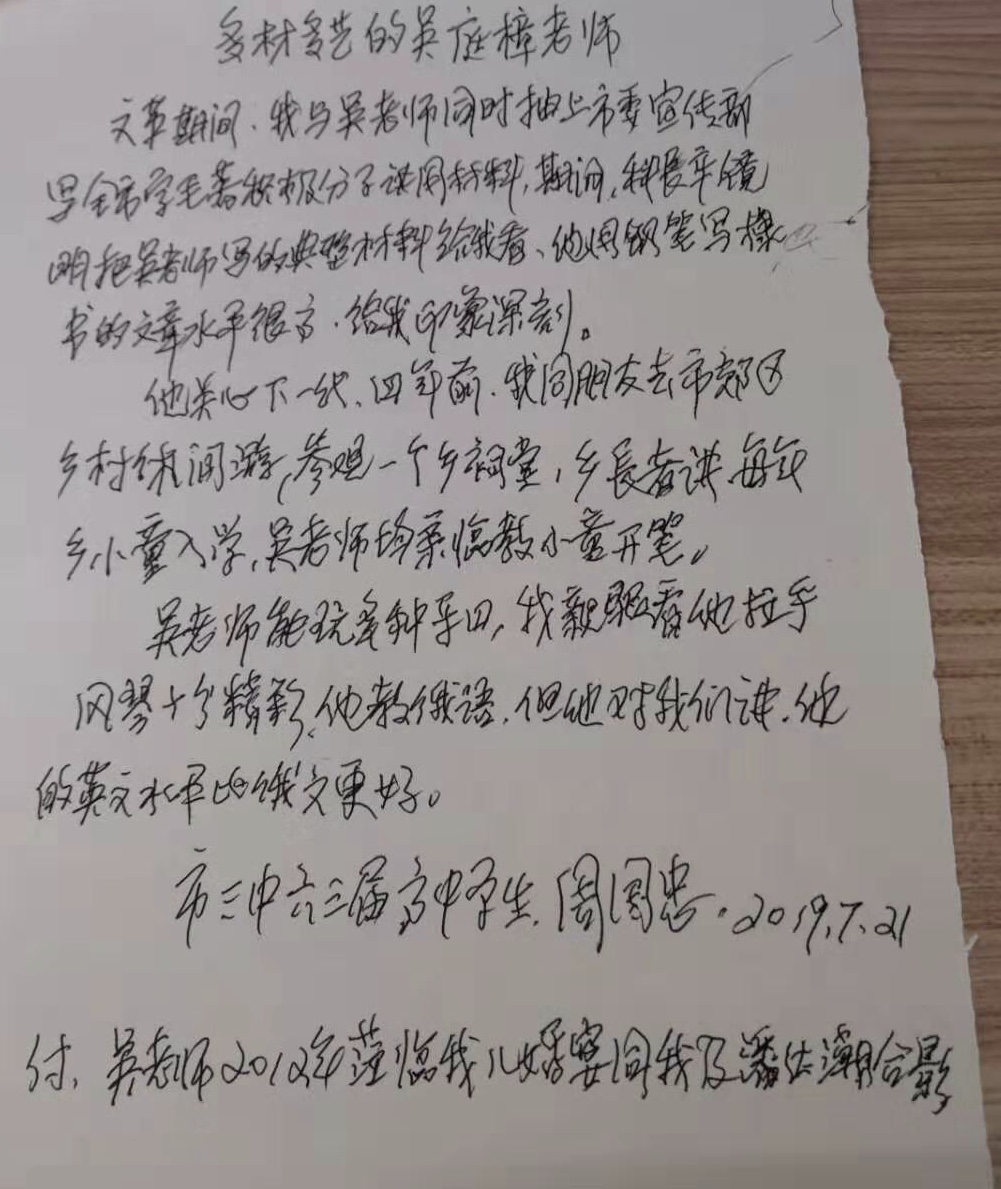 多材多艺的吴庭樟老师
文革期间、我与吴老师同时抽上市委宣传部
写全市学毛著积极分子讲用材料,期间,科长辛镜
明把吴老师写的典型材料给我看、他用钢笔写棣
书的文章水平很高.给我印象深刻。
他关心下一代、四年前.我同朋友去市郊区
乡村休闲游,参观一个乡祠堂,乡長者讲.每年
乡小童入学,吴老师均亲临教小童开笔。
吴老师能玩多种乐四,我親眼看他拉手
风琴十分精彩,他教俄语.但他对我们讲.他
的英文水平比俄文更好。
市三中六三届高中学生.周国忠.2019.7.21
付、吴老师2012年莅临我儿婚宴同我及潘仕潮合影